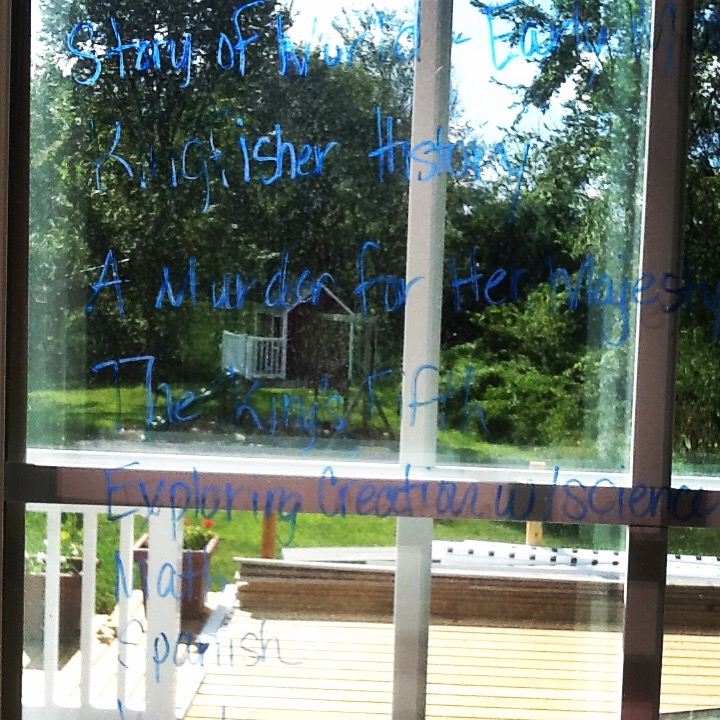 Story of World - Early
Kingfisher History
A Murder for Her Majesty
The King's Fifth
Exploring Creation w/science
Math
Spanish